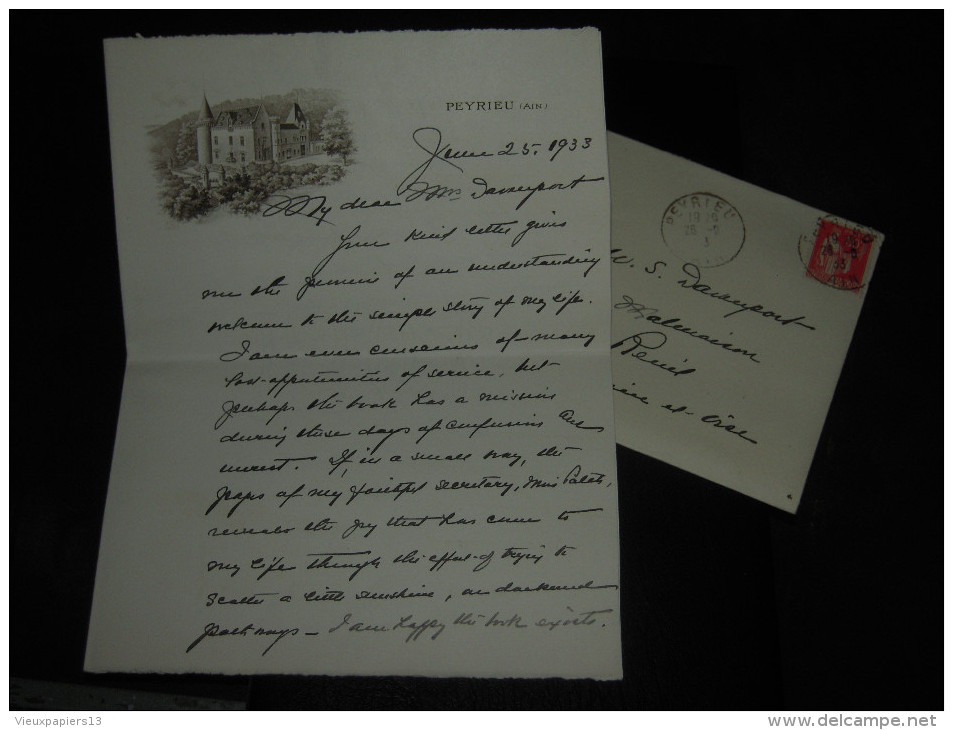 PEYRIEU (AIN)
June 25. 1933
My dear Mrs Davenport
Your kind letter gives
me the promise of an understanding
welcome to the simple story of my life.
I am even conscious of many
lost opportunities of service, but
perhaps the book has a mission
during these days of confusion and
unrest. If, in a small way, the
pages of my faithful secretary, Miss
the joy that has come to
my life through the effort of trying to
scatter a little sunshine, on darkened
pathways - I am happy the book exists.
PEYRIEU
W. S. Davenport
Malmaison
Rueil
et-Oise
Vieuxpapiers13
www.delcampe.net